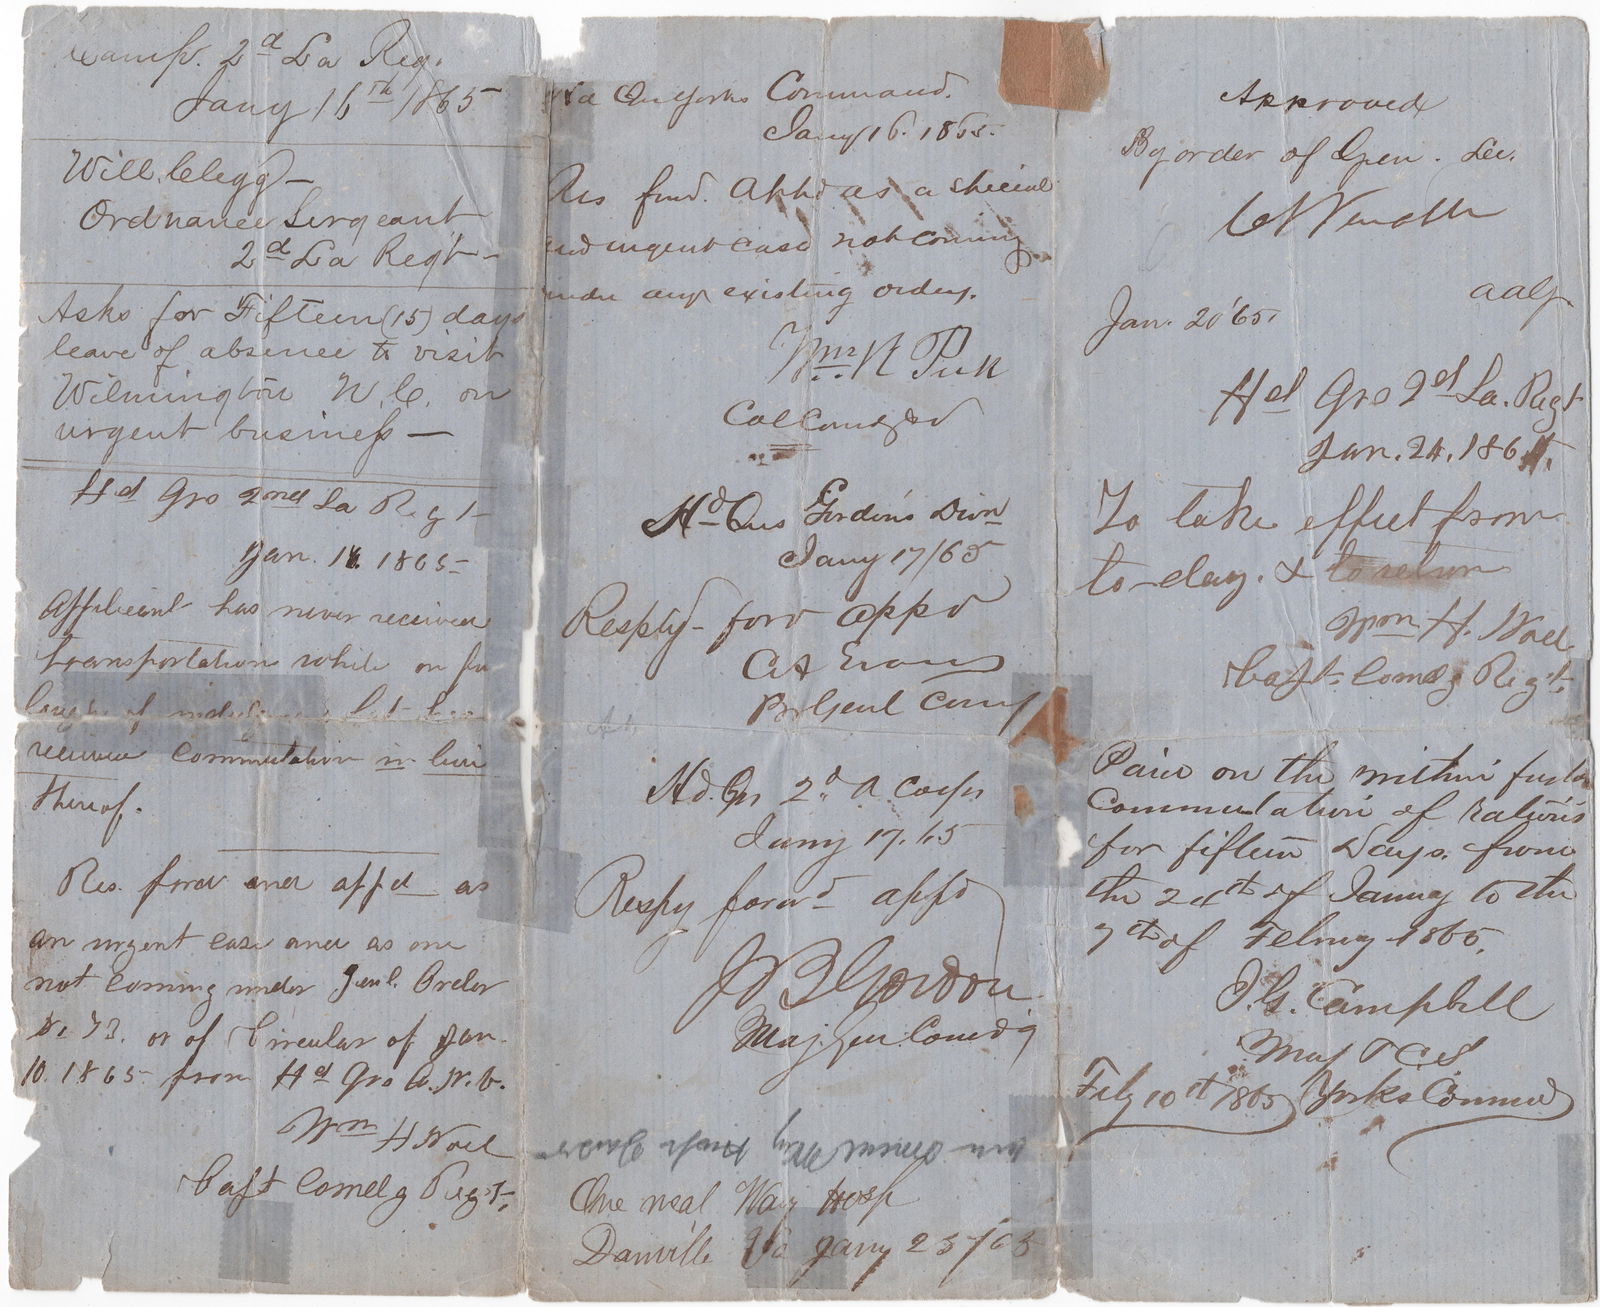 Camp. 2d La Reg.
Jany 16th 1865
Will. Clegg –
Ordnance Sergeant
2d La Regt –
Asks for Fifteen (15) days
leave of absence to visit
Wilmington N.C. on
urgent business –
Hd Qrs 2nd La Regt
Jan. 16. 1865
Applicant has never received
transportation while on fur
of
received commutation in lieu
thereof.
Res. ford and appd as
an urgent case and as one
not coming under Genl. Order
or of Circular of Jan.
10. 1865 from Hd Qrs A.N.V.
Wm H Noel
Capt Comdg Regt.
Yorks Command.
Jany 16. 1865.
Res ford. Appd as a special
and urgent case not coming
under any existing orders.
Wm. R Peck
Col Comdg
Hd Qrs Gordon's Divn
Jany 17/65
Resply – ford appd
C A Evans
Br Genl Comg
Hd. Qrs 2d A Corps
Jany 17. 65
Respy forwd appd
J B Gordon
Maj Gen. Comdg
One meal Way Hosp
Danville Va Jany 25/65
Approved
By order of Gen. Lee.
C S Venable
aag
Jan. 20 '65
Hd Qrs 2d La. Regt
Jan. 24. 1865.
To take effect from
to-day. & to return
Wm H. Noel
Capt. Comdg Regt.
Paid on the within furlo
Commutation of rations
for fifteen Days. from
the 24th of Januy to the
7th of Febuy 1865.
J. G. Campbell
Maj & CS
Feby 10th 1865 Yorks Commd